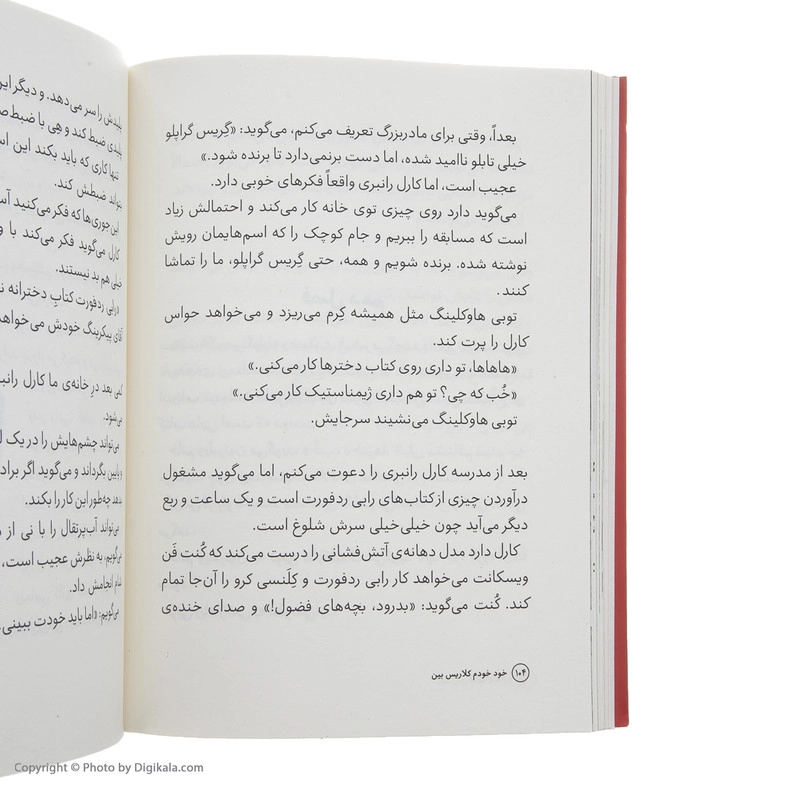 بعداً، وقتی برای مادربزرگ تعریف می‌کنم، می‌گوید: «گِریس گراپلو
خیلی تابلو ناامید شده، اما دست برنمی‌دارد تا برنده شود.»
عجیب است، اما کارل رانبری واقعاً فکرهای خوبی دارد.
می‌گوید دارد روی چیزی توی خانه کار می‌کند و احتمالش زیاد
است که مسابقه را ببریم و جام کوچک را که اسم‌هایمان رویش
نوشته شده. برنده شویم و همه، حتی گِریس گراپلو، ما را تماشا
کنند.
توبی هاوکلینگ مثل همیشه کِرم می‌ریزد و می‌خواهد حواس
کارل را پرت کند.
«هاهاها، تو داری روی کتاب دخترها کار می‌کنی.»
«خُب که چی؟ تو هم داری ژیمناستیک کار می‌کنی.»
توبی هاوکلینگ می‌نشیند سرجایش.
بعد از مدرسه کارل رانبری را دعوت می‌کنم، اما می‌گوید مشغول
درآوردن چیزی از کتاب‌های رابی ردفورت است و یک ساعت و ربع
دیگر می‌آید چون خیلی‌خیلی سرش شلوغ است.
کارل دارد مدل دهانه‌ی آتش‌فشانی را درست می‌کند که کُنت فَن
ویسکانت می‌خواهد کار رابی ردفورت و کِلَنسی کرو را آن‌جا تمام
کند. کُنت می‌گوید: «بدرود، بچه‌های فضول!» و صدای خنده‌ی
۱۰۴ خود خودم کلاریس بین
پلیدش را سر می‌دهد. و دیگر این
پلیدی ضبط کند و هِی با ضبط‌ص
تنها کاری که باید بکند این اس
بتواند ضبطش کند.
این جوری‌ها که فکر می‌کنید آس
کارل می‌گوید فکر می‌کند با و
خیلی هم بد نیستند.
رابی ردفورت کتابِ دخترانه ن
آقای پیکرینگ خودش می‌خواهد
کمی بعد درِ خانه‌ی ما کارل رانبر
می‌شود.
می‌تواند چشم‌هایش را در یک ل
و پایین بگرداند و می‌گوید اگر براد
بدهد چه‌طور این کار را بکند.
می‌تواند آب‌پرتقال را با نی از د
می‌گویم، به نظرش عجیب است،
انجامش داد.
می‌گویم: «اما باید خودت ببینی
Copyright © Photo by Digikala.com